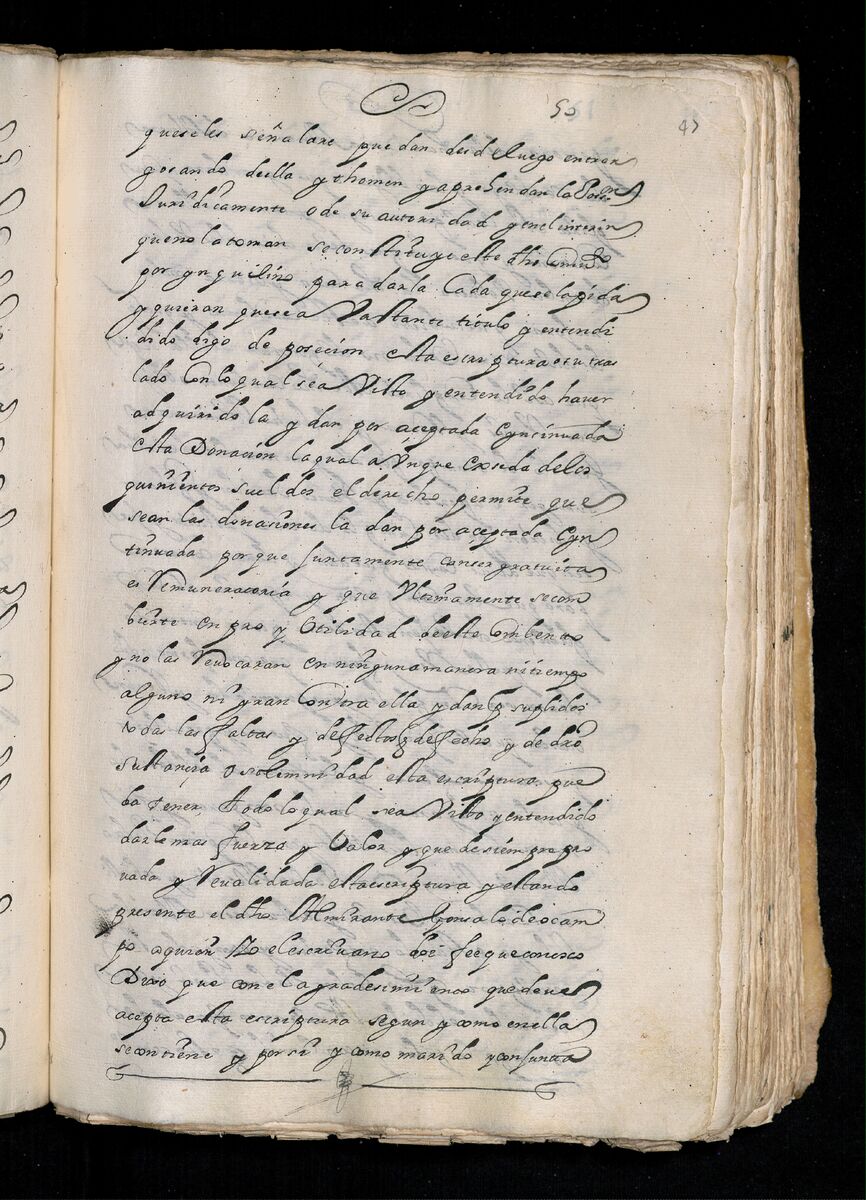 55
47
que seles señalare puedan desde luego entrar
gosando della y thomen y aprehendan la Poson
Juridicamente o de su autoridad y enel interin
que no la toman se constituye este dho Combto
por ynquilino para darla Cada que se la pida
y quieran que sea Vastante titulo y entendi
dido digo de posecion esta escriptura o su tras
lado Con lo qual sea Visto y entendido haver
adquirido la y dan por aceptada e ynsinuada
esta Donación la qual a Ûnque Exseda delos
quinientos sueldos el derecho permite que
sean las donasiones la dan por aceptada e yn
tinuada porque juntamente conser gratuita
es Remuneratoria y que Ultimamente se com
bierte en pro y Utilidad de este Combento
y no las Revocaran en ninguna manera ni tiempo
alguno ni yran Contra ella y dan p suplidos
todas las faltas y defectos de fecho y de dro
sustancia o solemnidad esta escriptura que
ba tener todo lo qual sea Visto y entendido
darle mas fuerza y Valor y que de siempre pro
vada y Revalidada esta escriptura y estando
presente el dho Almirante Gonsalo de ocam
po a quien Yo el escriuano doi fee que conosco
Dixo que con el agradesimiento que deue
acepta esta escriptura segun y como en ella
se contiene y por si y como marido y conjunta